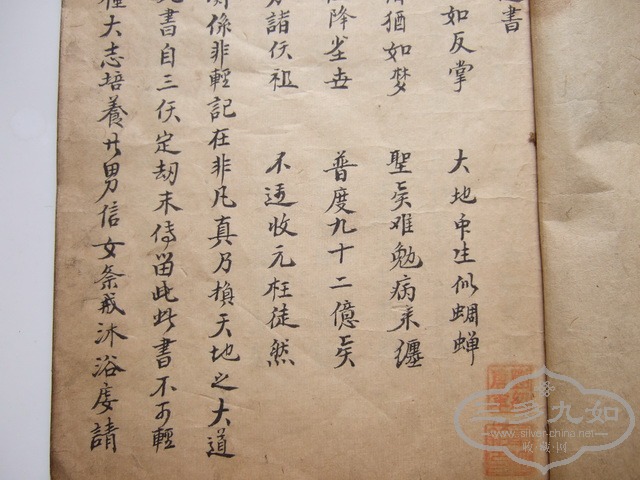 書
如反掌 大地巾生似蜩蟬
猶如梦 聖㒵难勉病来纏
降坐世 普度九十二億㒵
詣仸祖 不逓收元枉徒然
係非輕記在非凡真乃損天地之大道
書自三仸定刼末侍留此此書不可輕
大志培養廾男信女条戒沐浴虔請
三多九如
www.silver-china.net
收藏网